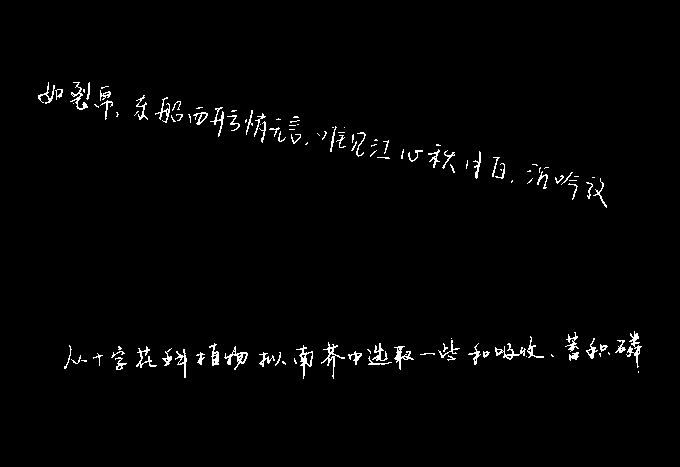 如裂帛，东船西舫悄无言，唯见江心秋月白，沉吟放
从十字花科植物拟南芥中选取一些和吸收、蓄积磷